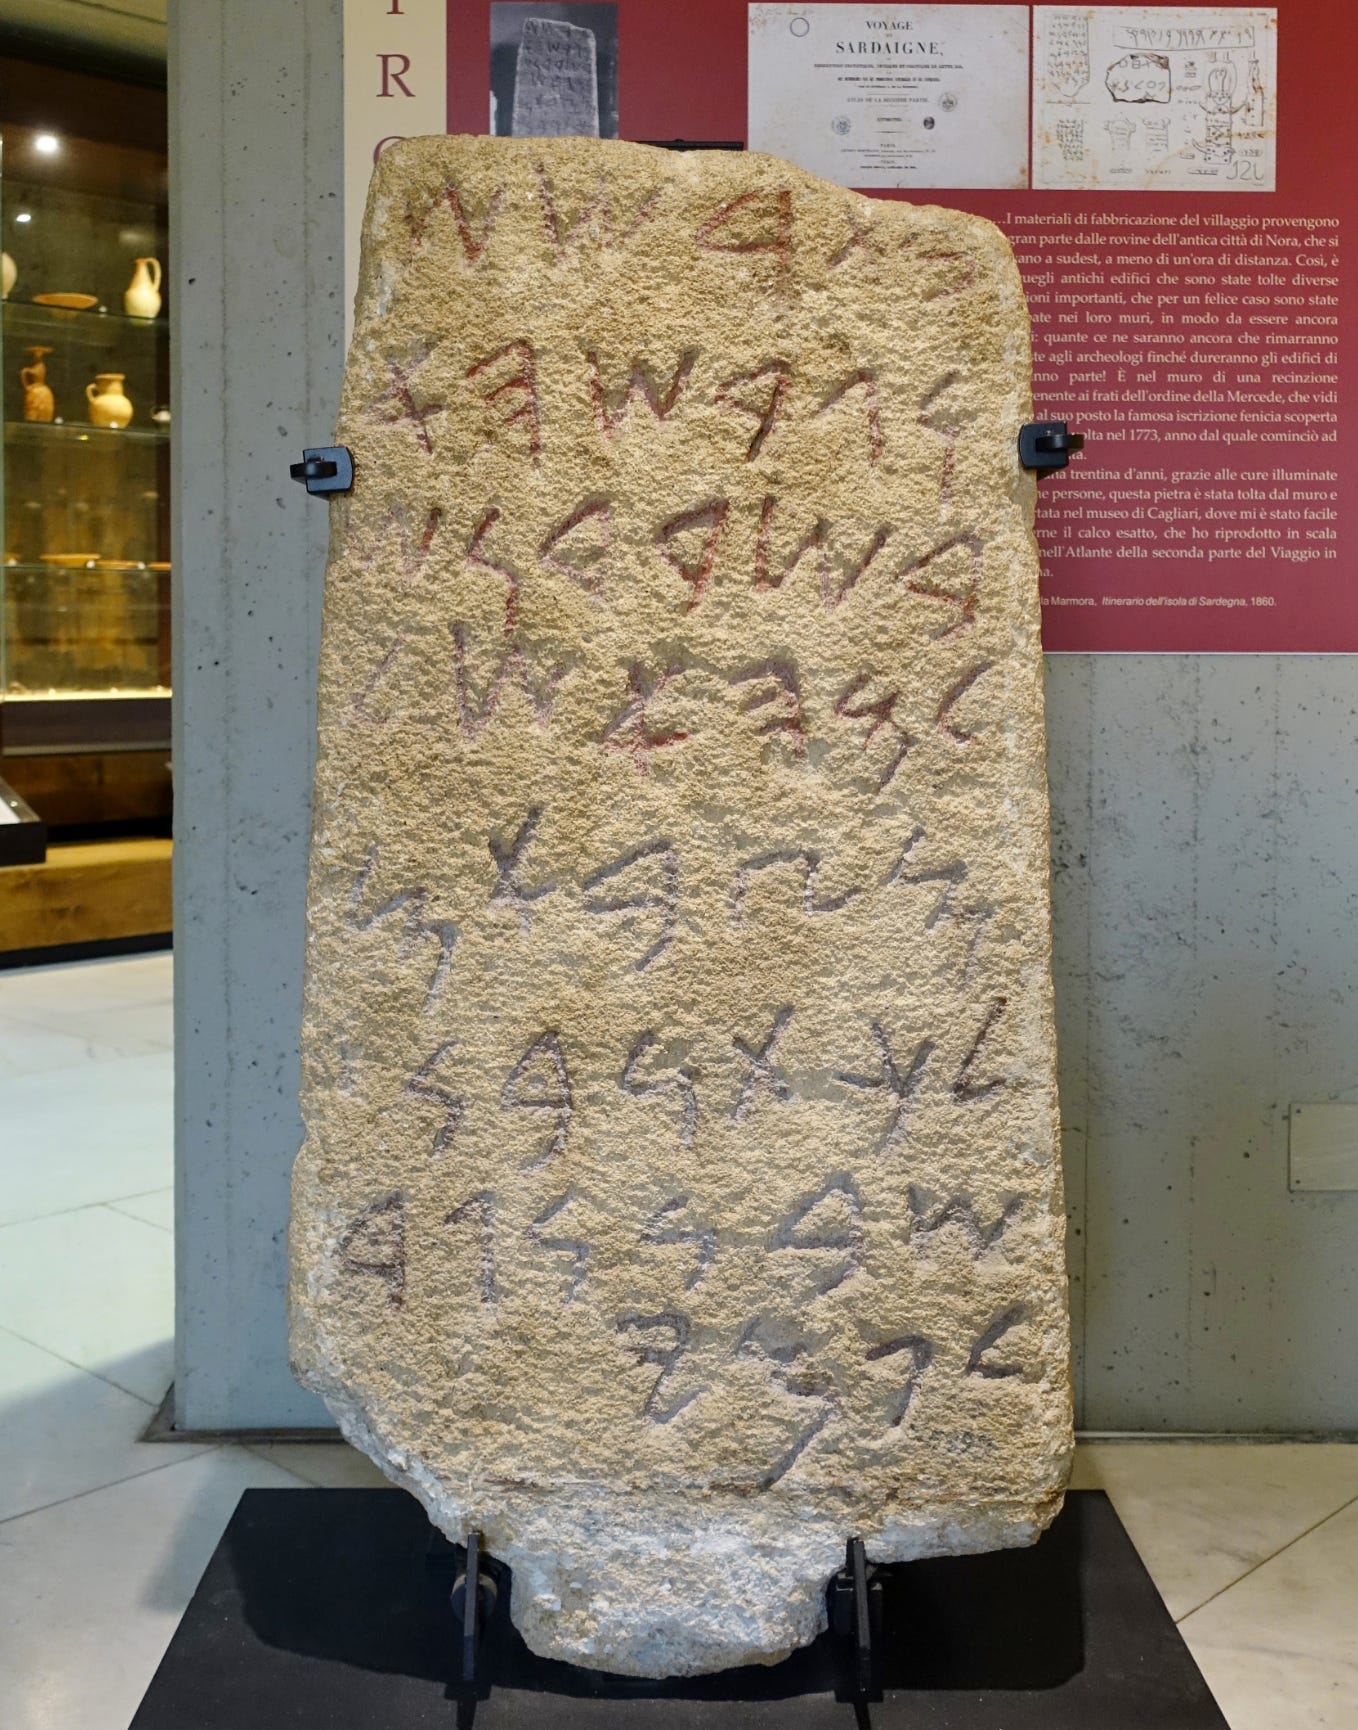 𐤁𐤕𐤓𐤔𐤔
𐤍𐤂𐤓𐤔𐤄𐤀
𐤁𐤔𐤓𐤃𐤍𐤔
𐤋𐤌𐤄𐤀𐤔𐤋
𐤌𐤑𐤁𐤀𐤌
𐤋𐤊𐤕𐤍𐤁𐤍
𐤔𐤁𐤍𐤍𐤂𐤓
𐤋𐤐𐤌𐤉
VOYAGE
SARDAIGNE,
ATLAS DE LA SECONDE PARTIE
…I materiali di fabbricazione del villaggio provengono
gran parte dalle rovine dell'antica città di Nora, che si
a sudest, a meno di un'ora di distanza. Così, è
antichi edifici che sono state tolte diverse
importanti, che per un felice caso sono state
nei loro muri, in modo da essere ancora
quante ce ne saranno ancora che rimarranno
agli archeologi finché dureranno gli edifici di
parte! È nel muro di una recinzione
ai frati dell'ordine della Mercede, che vidi
al suo posto la famosa iscrizione fenicia scoperta
nel 1773, anno dal quale cominciò ad
trentina d'anni, grazie alle cure illuminate
persone, questa pietra è stata tolta dal muro e
nel museo di Cagliari, dove mi è stato facile
il calco esatto, che ho riprodotto in scala
nell'Atlante della seconda parte del Viaggio in
Marmora, Itinerario dell'isola di Sardegna, 1860.